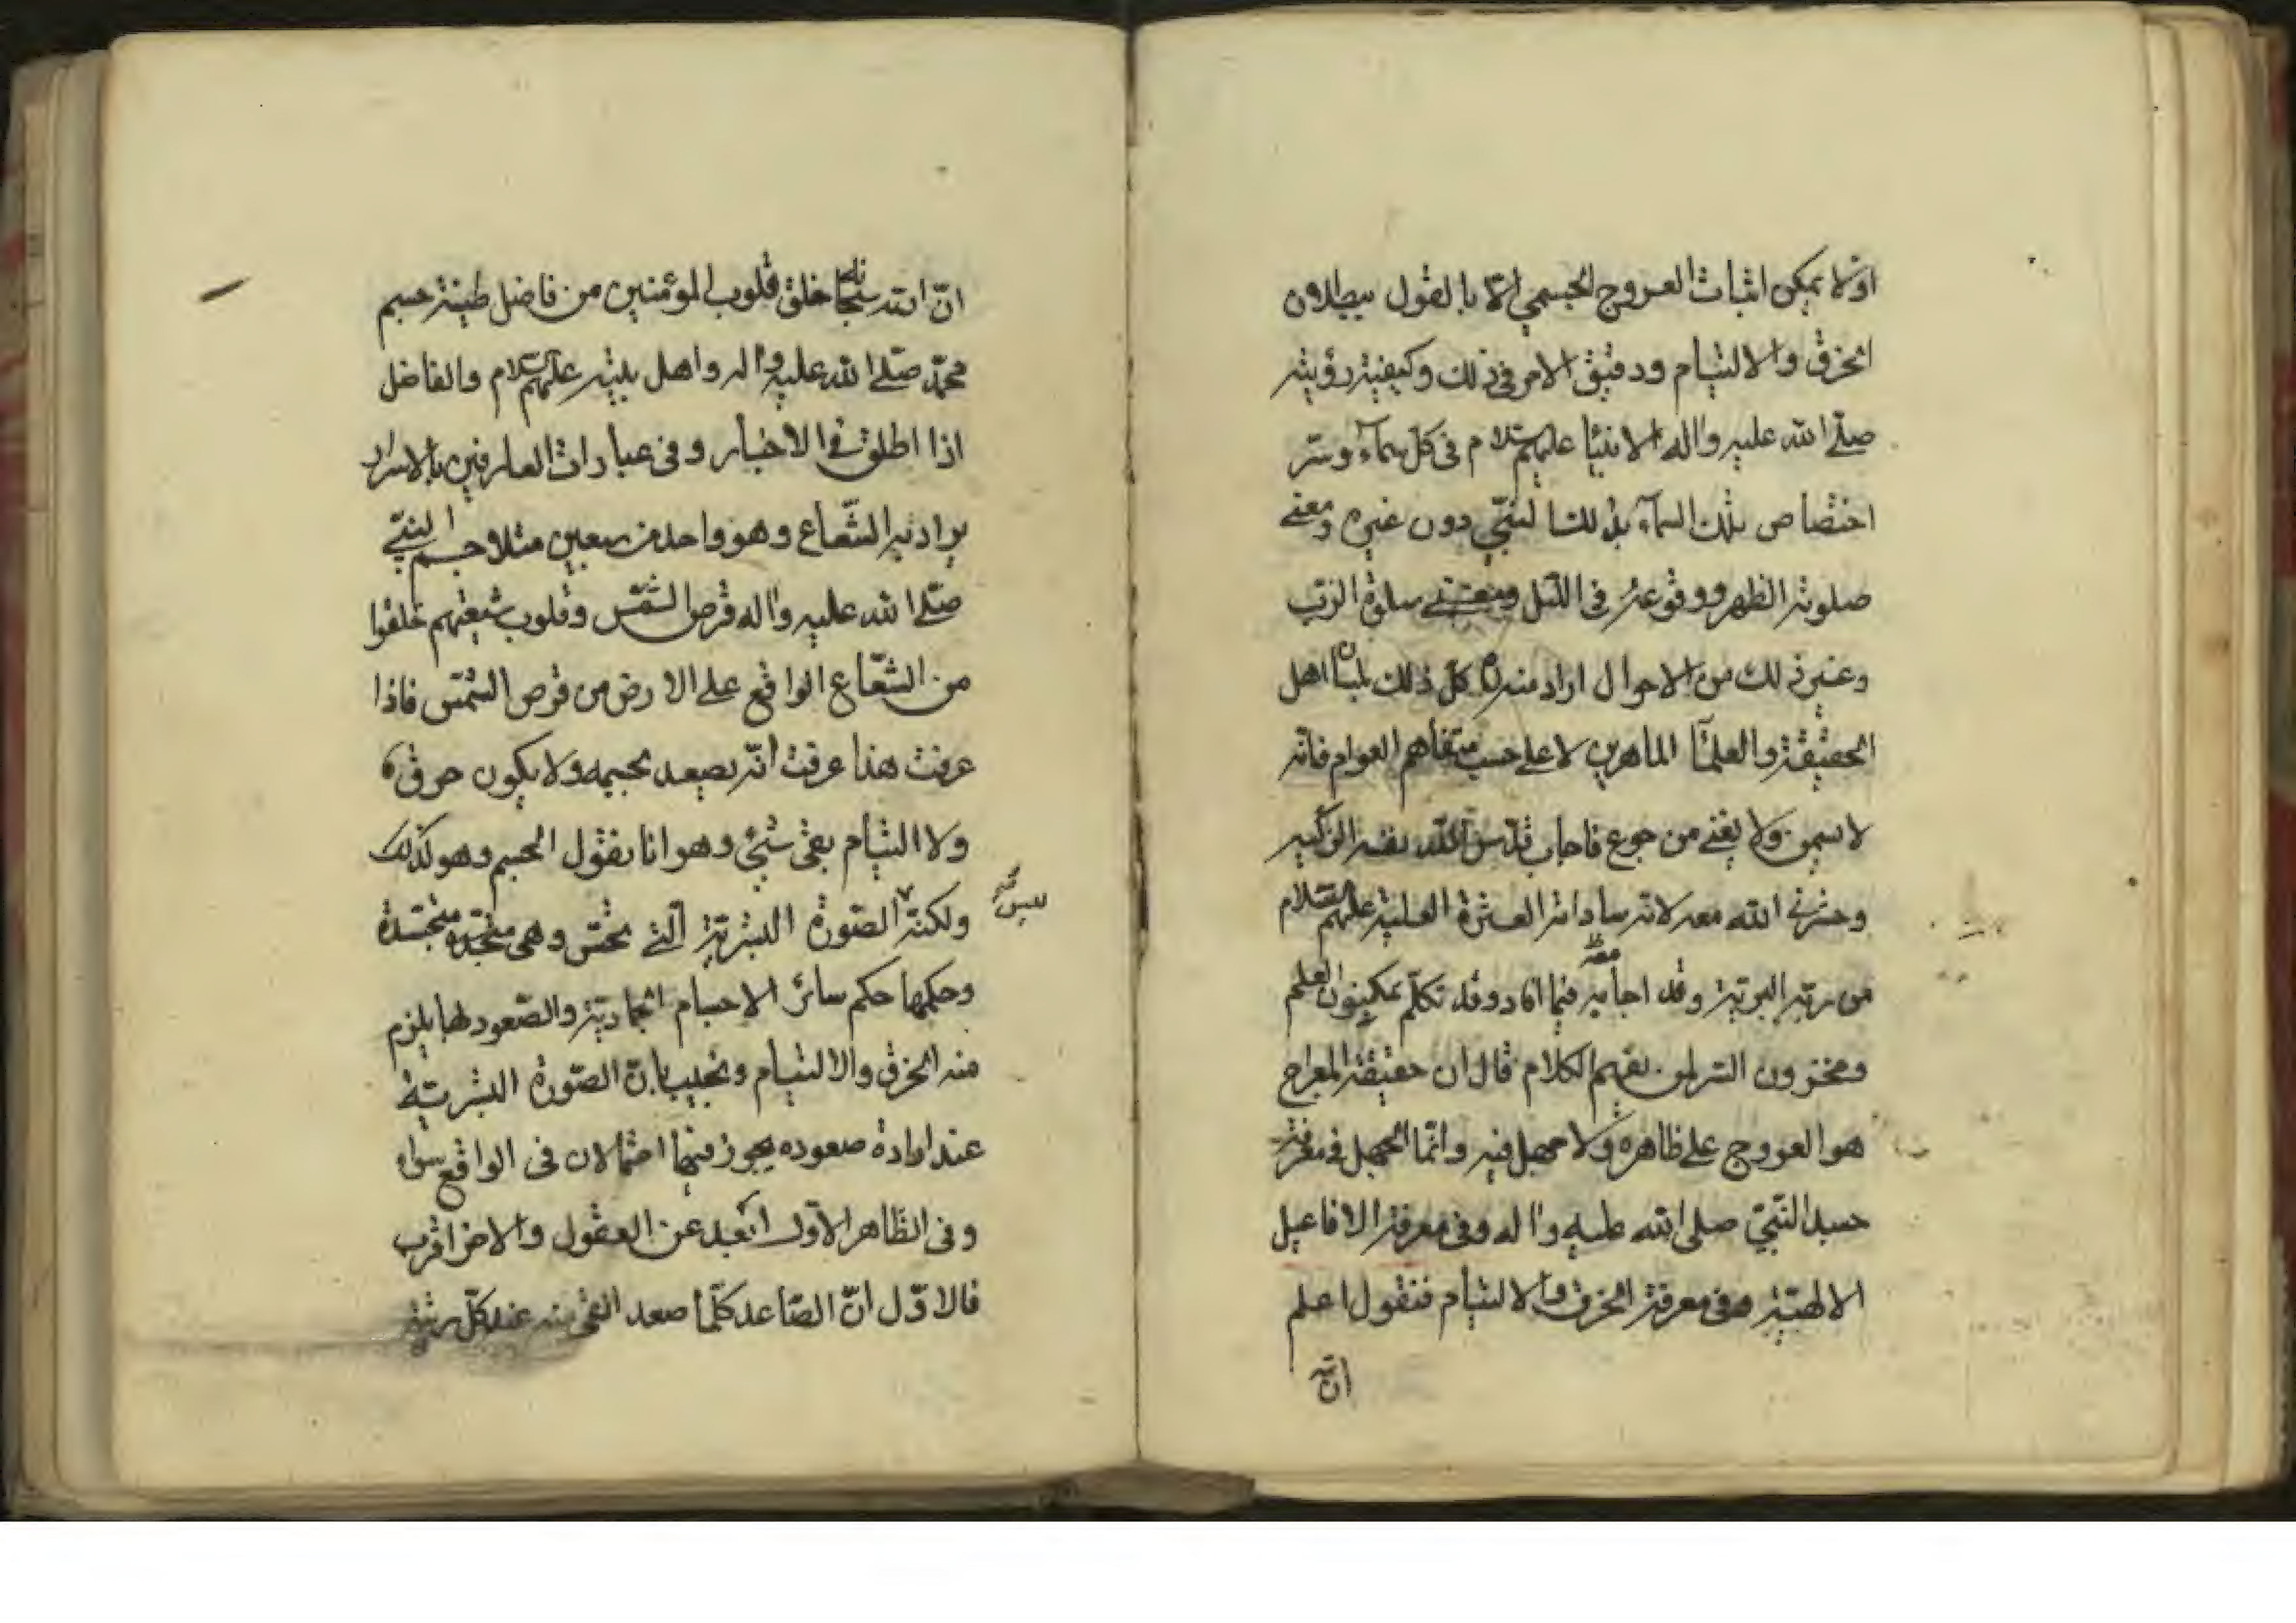 اولا يمكن اثبات العروج الجسمي الا بالقول ببطلان
الخرق والالتيام ودقيق الامر في ذلك وكيفية رؤيته
صلى الله عليه واله الانبيا عليهم السلام في كل سماء وسر
اختصاص تلك السماء بذلك النبي دون غيره ومعنى
صلوته الظهر ووقوعه في الليل ومعنى صلوة الرب
وغير ذلك من الاحوال اراد منه كل ذلك بلسان اهل
الحقيقة والعلما الماهرين لا على حسب متفاهم العوام فانه
لا يسمن ولا يغني من جوع فاجاب قدس الله نفسه الزكية
وحشرني الله معه لانه ساداته العترة العلية عليهم السلام
من ربه البرية وقد اجابه فيما افاد وقد تكلم بمكنون العلم
ومخزون السر لمن يفهم الكلام قال ان حقيقة المعراج
هو العروج على ظاهره ولا جهل فيه وانما الجهل في معرفة
جسد النبي صلى الله عليه واله وفي معرفة الافاعيل
الالهية وفي معرفة الخرق والالتيام فنقول اعلم
انّ
انّ الله سبحانه خلق قلوب المؤمنين من فاضل طينة جسم
محمد صلى الله عليه واله واهل بيته عليهم السلام والفاضل
اذا اطلق في الاخبار وفي عبارات العارفين بالاسرار
يراد به الشعاع وهو واحد من سبعين مثلا جسم النبي
صلى الله عليه واله قرص الشمس وقلوب شيعتهم خلقوا
من الشعاع الواقع على الارض من قرص الشمس فاذا
عرفت هذا عرفت انه يصعد بجسمه ولا يكون خرق
ولا التيام بقى شئ وهو انا نقول الجسم وهو كذلك
ولكنه الصورة البشرية التي تحس وهي متجسدة
وحكمها حكم سائر الاجسام الجمادية والصعود لها يلزم
منه الخرق والالتيام ونجيب بان الصورة البشرية
عند ارادة صعوده يجوز فيها احتمالان في الواقع سواء
وفي الظاهر الاول ابعد عن العقول والاخر اقرب
فالاوّل انّ الصاعد كلما صعد القى منه عند كل رتبة